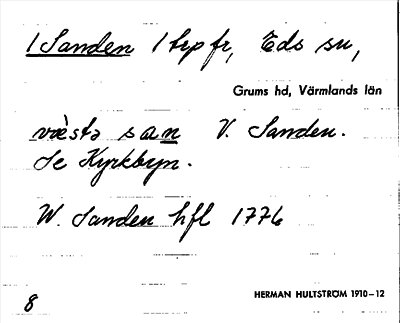 1 Sanden 1 trp fr, Eds sn,
Grums hd, Värmlands län
væ̀stə san V. Sanden.
Se Kyrkbyn.
W. Sanden hfl 1776
HERMAN HULTSTRÖM 1910–12
8